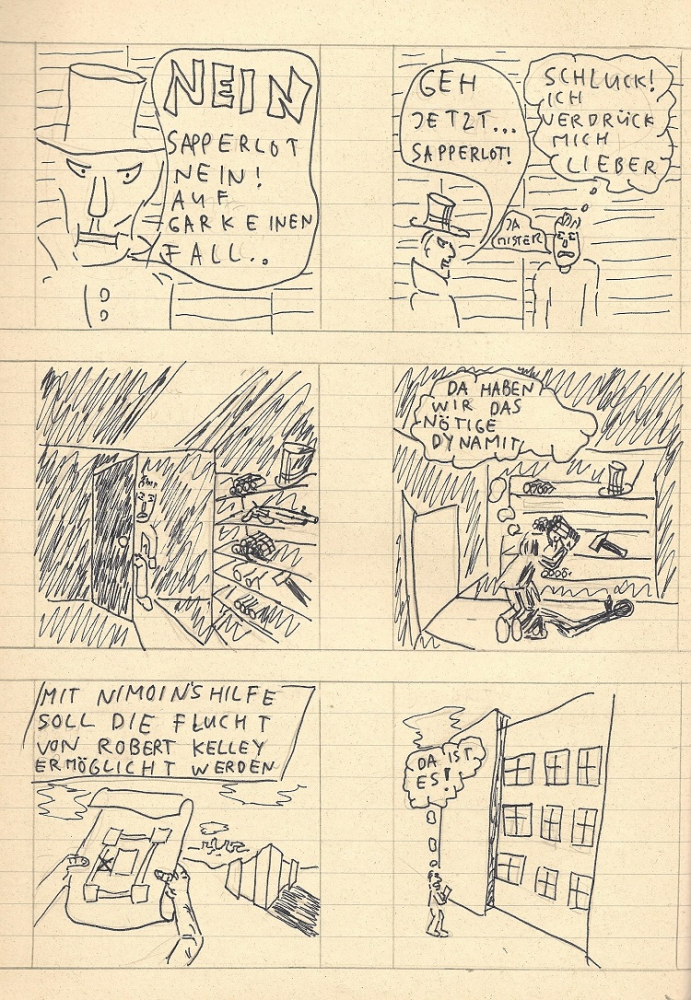 NEIN
SAPPERLOT
NEIN!
AUF
GARKEINEN
FALL..
GEH
JETZT...
SAPPERLOT!
SCHLUCK!
ICH
VERDRÜCK
MICH
LIEBER
JA
MISTER
DA HABEN
WIR DAS
NÖTIGE
DYNAMIT
MIT NIMOIN'S HILFE
SOLL DIE FLUCHT
VON ROBERT KELLEY
ERMÖGLICHT WERDEN
DA IST
ES!